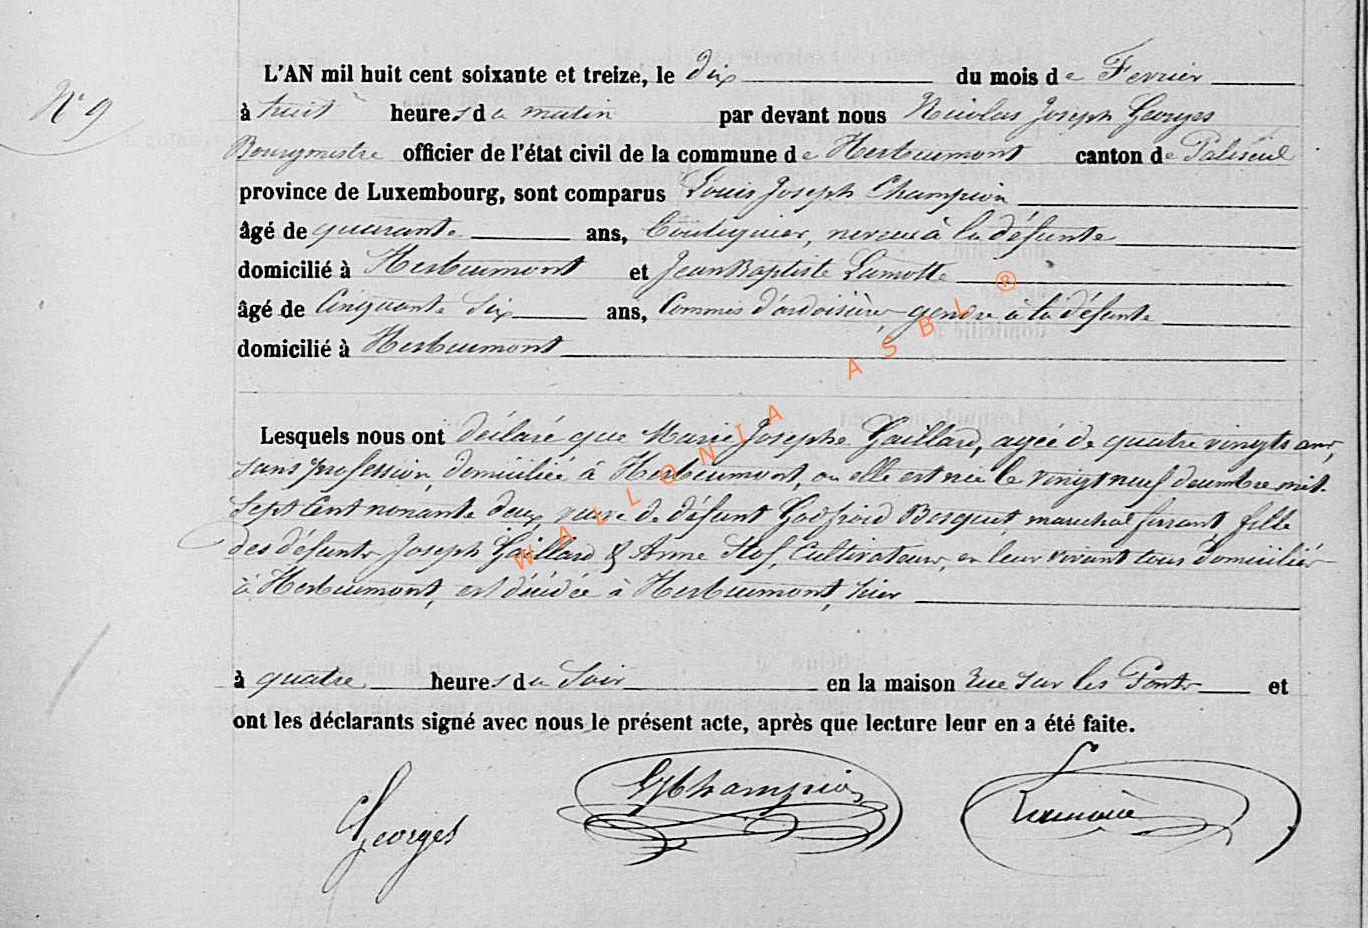 N° 9
L'AN mil huit cent soixante et treize, le dix du mois de Fevrier
à huit heures du matin par devant nous Nicolas Joseph Georges
Bourgmestre officier de l'état civil de la commune de Herbeumont canton de Paliseul
province de Luxembourg, sont comparus Louis Joseph Champion
âgé de quarante ans, neveu à la défunte
domicilié à Herbeumont et Jean Baptiste Lamotte
âgé de Cinquante Six ans, Commis d'ardoisière gendre à la défunte
domicilié à Herbeumont
Lesquels nous ont déclaré que Marie Josephe Gaillard, agée de quatre vingts ans,
sans profession, domiciliée à Herbeumont, ou elle est née le vingt neuf decembre mil
sept cent nonante deux, veuve de défunt Godfroid Bosquet, marechal ferrant, fille
des défunts Joseph Gaillard & Anne Stof, Cultivateurs, en leur vivant tous domiciliés
à Herbeumont, est décédée à Herbeumont, hier
à quatre heures du Soir en la maison rue sur les Ponts et
ont les déclarants signé avec nous le présent acte, après que lecture leur en a été faite.
Georges Champion
WALLONIA ASBL ®